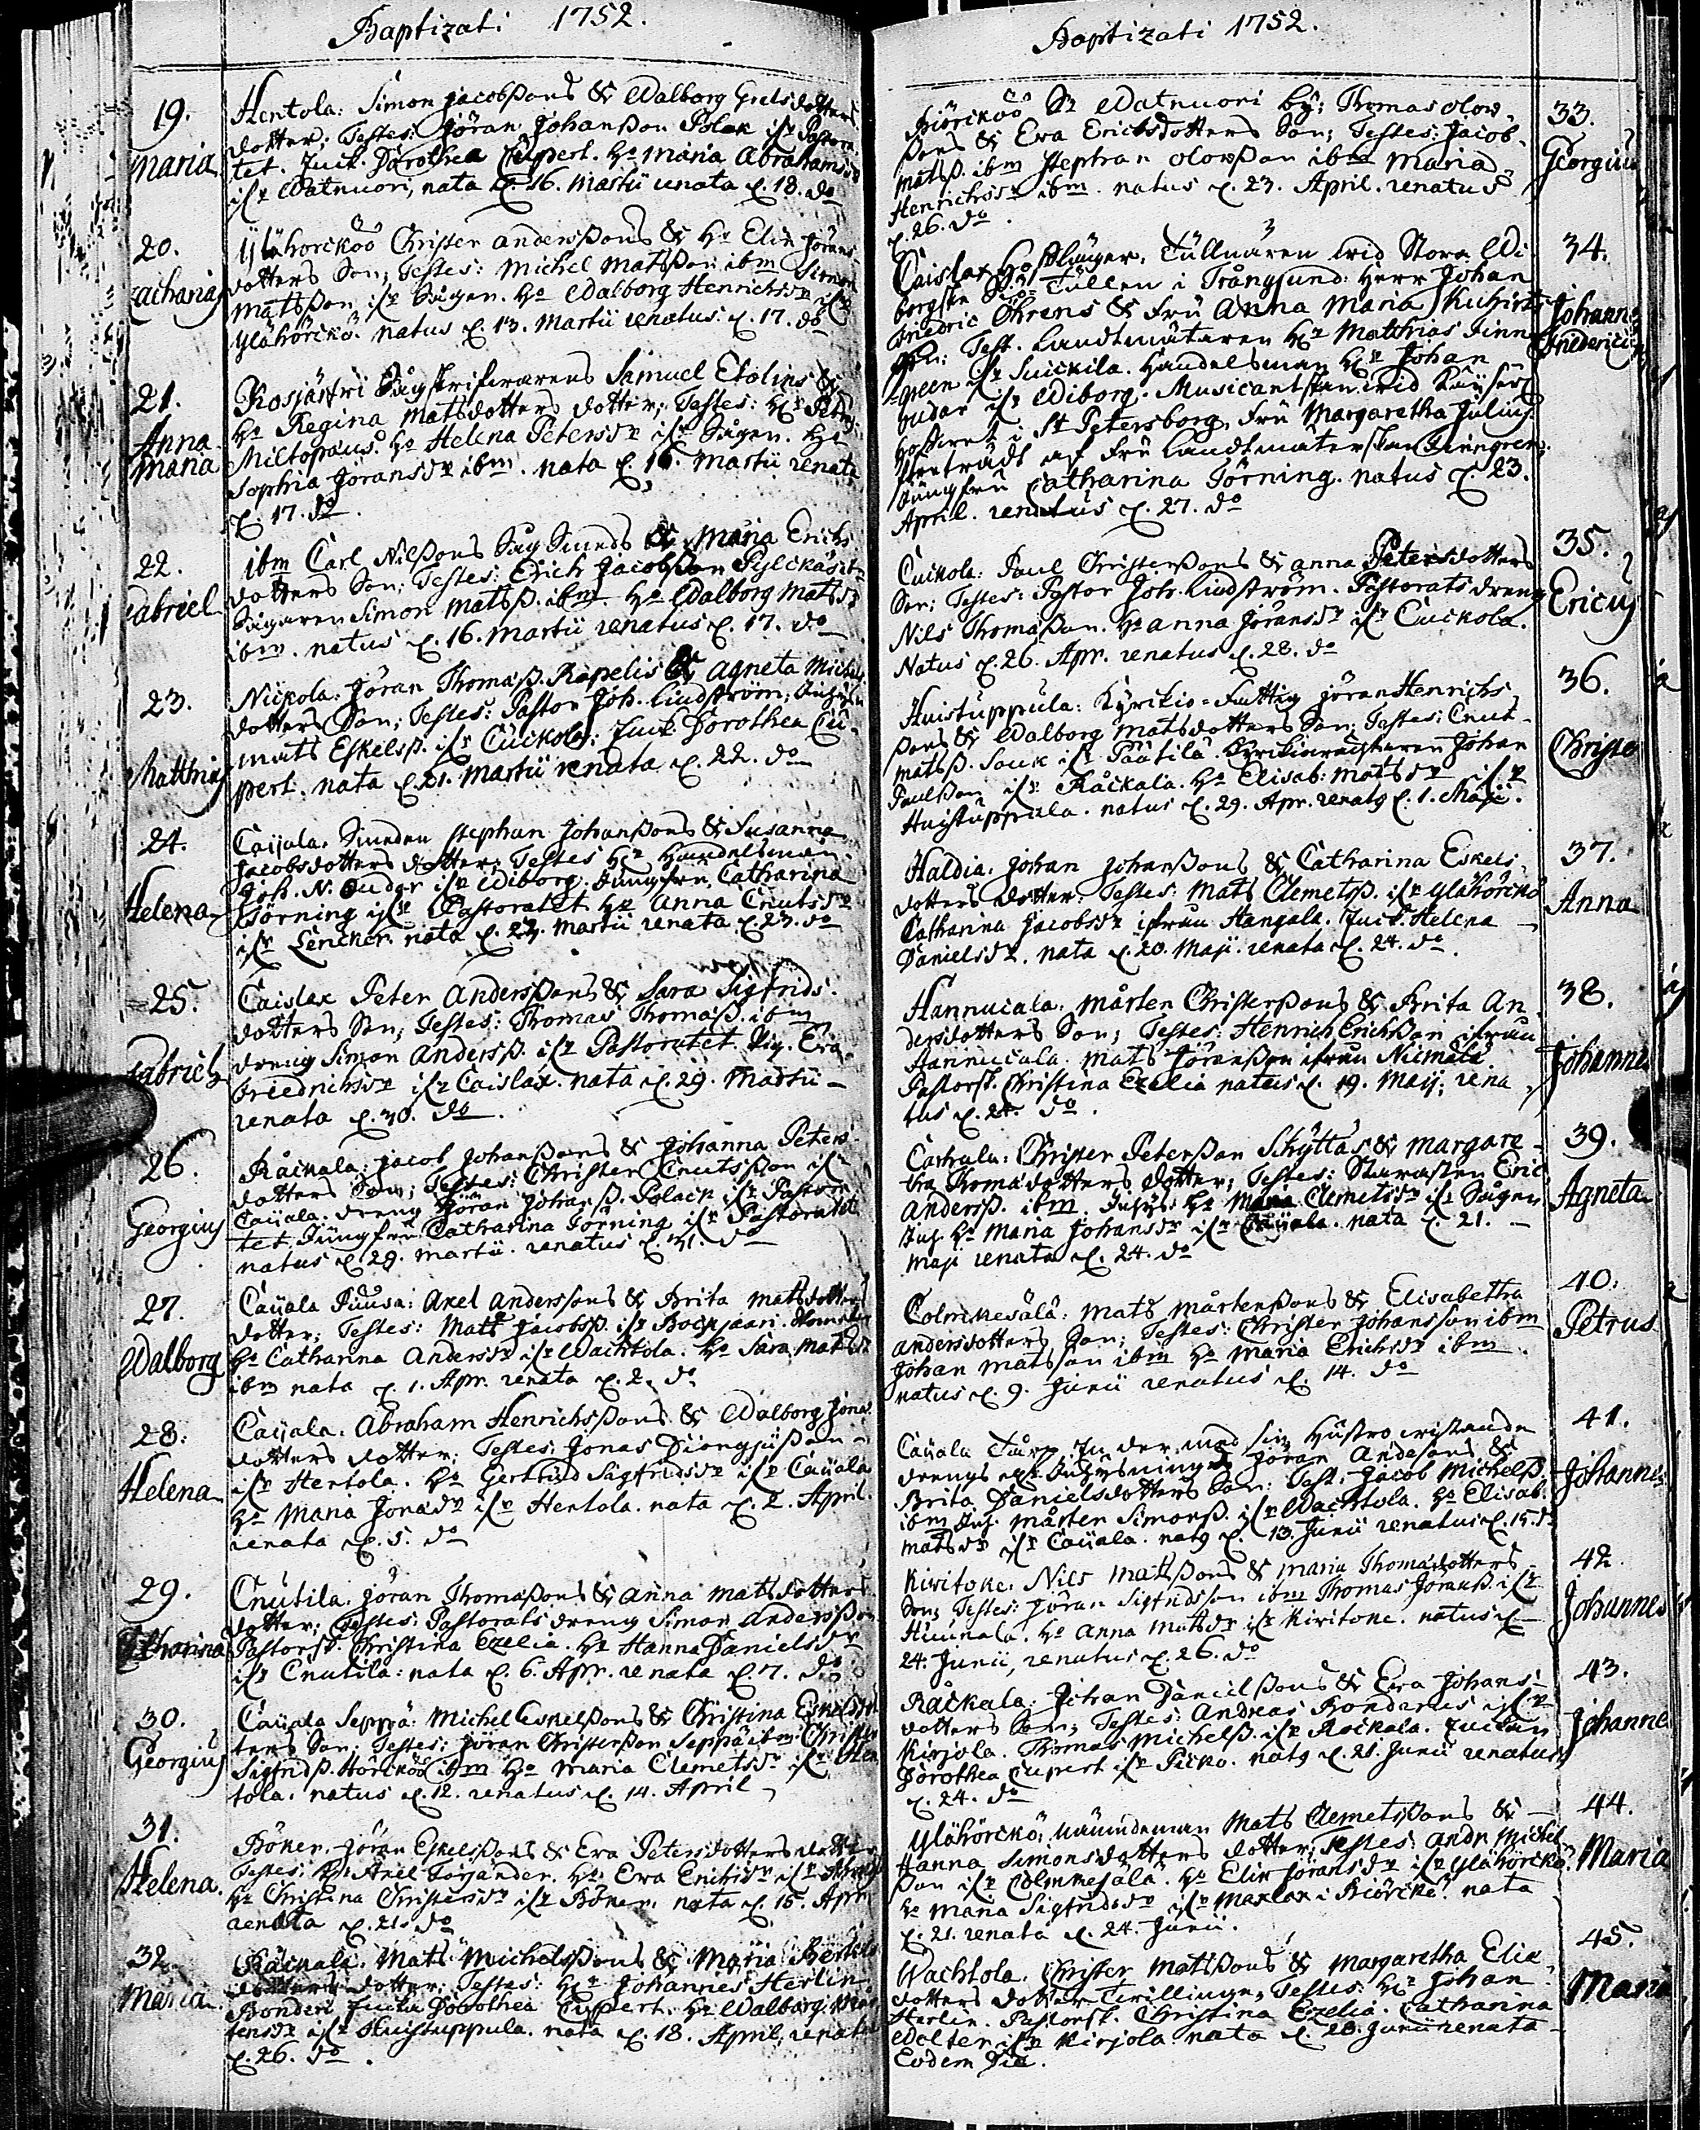 Baptizati 1752.
19.
Maria
Hentola: Simon Jacobssons & Walborg Grels dotters
dotter; Testes: Jöran Johansson Polak ifr Pastora
tet. Juck. Dorothea Cupert. Ho Maria Abrahamsdr
ifr Watnuori, nata d. 16. Martii renata d. 18. do
20.
Zacharias
Ylähörcköö Christer Anderssons & Ho Elin Jörans
dotters Son; Testes: Michel Matsson ibm Simon
Matsson ifr Sågen. Ho Walborg Henrichsdr ifr
Ylähörckö. natus d. 13. Martii renatus d. 17. do
21.
Anna
Maria
Rosjärfvi Sågskrifvarens Samuel Etolins &
Ho Regina Matsdotters dotter; Testes: Hr Petr.
Miltopaeus. Ho Helena Petersdr ifr Sågen. Ho
Sophia Jöransdr ibm. nata d. 16. Martii renata
d. 17. do
22.
Gabriel
ibm Carl Nilssons Såg Smeds & Maria Erichs
dotters Son; Testes: Erich Jacobsson
Sågaren Simon Matss. ibm. Ho Walborg Matsdr
ibm. natus d. 16. Martii renatus d. 17. do
23.
Matthias
Nickola: Jöran Thomass. Rapelis & Agneta Michels
dotters Son; Testes: Pastor Joh. Lindström;
Mats Eskelss. ifr Cuickola: Juck. Dorothea Cu
pert. nata d. 21. Martii renata d. 22. do
24.
Helena
Caijala. Smeden Stephan Johanssons & Susanna
Jacobsdotters dotter; Testes Hr Handelsman
Joh. N. Ouder ifr Wiborg. Jungfru Catharina
Törning ifr Pastoratet Ho Anna Cnutsdr
ifr Lencker. nata d. 22. Martii renata d. 23. do
25.
Gabriel
Caislax Peter Anderssons & Sara Sigfrids
dotters Son; Testes: Thomas Thomass. ibm
dreng Simon Anderss. ifr Pastoratet Pig. Eva
Friedrichsdr ifr Caislax. nata d. 29. Martii
renata d. 30. do
26.
Georgius
Råckala: Jacob Johanssons & Johanna Peters
dotters Son; Testes: Christer Cnutsson ifr
Caijala. dreng Jöran Johanss. Polack ifr Pastora
tet Jungfru Catharina Törning ifr Pastoratet
natus d. 29. Martii. renatus d. 31. do
27.
Walborg
Caijala Axel Anderssons & Brita Matsdotters
dotter; Testes: Mats Jacobss. ifr
Ho Catharina Andersdr ifr Wachtola. Ho Sara Matsdr
ibm nata d. 1. Apr. renata d. 2. do
28.
Helena
Caijala. Abraham Henrichssons & Walborg Jonas
dotters dotter; Testes: Jonas
ifr Hertola. Ho Gertrud Sigfridsdr ifr Caijala
Ho Maria Jonasdr ifr Hertola. nata d. 2. April
renata d. 5. do
29.
Catharina
Cnutila. Jöran Thomassons & Anna Matsdotters
dotter; Testes: Pastorats dreng Simon Andersson
Pastorsk. Christina Ezelia. Ho Hanna Danielsdr
ifr Cnutila: nata d. 6. Apr. renata d. 7. do
30.
Georgius
Caijala Seppä: Michel Eskelssons & Christina Eskelsdot
ters Son; Testes: Jöran Christersson Seppä ibm. Christer
Sigfridss. Hörcköö ibm Ho Maria Clemetsdr ifr Hen
tola. natus d. 12. renatus d. 14. April
31.
Helena.
Böker. Jöran Eskelssons & Eva Petersdotters dotter
Testes: Hr Axel Forsander. Ho Eva Erichsdr ifr
Ho Christina Christersdr ifr Böker. nata d. 15. April
renata d. 21. do
32.
Maria.
Råckala. Mats Michelssons & Maria Bertils
dotters dotter; Testes: Hr Johannes Herlin
Bonden Juckn Dorothea Cuppert. Ho Walborg Mår
tensdr ifr Huistuppula. nata d. 18. April, renata
d. 26. do.
Baptizati 1752.
33.
Georgius
Biörcköö Sn Watnuori by; Thomas Olow
sons & Eva Erichsdotters Son; Testes: Jacob
Matss. ibm Stephan Olowsson ibm Maria
Henrichsdr ibm. natus d. 23. April. renatus
d. 26. do.
34.
Johannes
Fridericus
Caislax Tullnären wid Stora Wi
borgska Siö-Tullen i Trångsund: Herr Johan
Friedric Öhrens & Fru Anna Maria
Son: Test. Landtmätaren Hr Matthias Finne
green ifr Suickila. Handelsman Hr Johan
Ouder ifr Wiborg. Musicantskan wid Käyserl
hofwet i St Petersborg, Fru Margaretha Julius
företrädt af Fru Landtmäterskan Finngren;
Jungfru Catharina Törning. natus d. 23.
April. renatus d. 27. do
35.
Ericus
Cuickola: Paul Christerssons & Anna Petersdotters
Son; Testes: Pastor Joh. Lindström. Pastorats dreng
Nils Thomasson. Ho Anna Jöransdr ifr Cuickola.
Natus d. 26. Apr. renatus d. 28. do
36.
Christer
Huistuppula: Kyrkio-Fattig Jöran Henrichs
sons & Walborg Matsdotters Son: Testes: Cnut
Matss. Sauk ifr Päätilä. Kyrkiowächtaren Johan
Paulsson ifr Råckala. Ho Elisab: Matsdr ifr
Huistuppula. natus d. 29. Apr. renatg d. 1. Maji.
37.
Anna
Haldia. Johan Johanssons & Catharina Eskels
dotters dotter: Testes: Mats Clemetss. ifr Ylähörckö
Catharina Jacobsdr ifrån Hangala. Juck. Helena
Danielsdr. nata d. 20. Maji. renata d. 24. do.
38.
Johannes
Hannucala. Mårten Christerssons & Brita An
dersdotters Son; Testes: Henrich Erichsson ifrån
Hannucala. Mats Jöransson ifrån Niemälä
Pastorsk. Christina Ezelia natus d. 19. Maij; rena
tus d. 24. do.
39.
Agneta
Carhula: Christer Petersson Skyttas & Margare
tha Thomasdotters dotter; Testes: Starasten Eric
Anderss. ibm. Ho Maria Clemetsdr ifr Sågen
Ho Maria Johansdr ifr Caijala. nata d. 21.
Maji renata d. 24. do
40.
Petrus
Colmikesälä: Mats Mårtenssons & Elisabetha
Andersdotters Son; Testes: Christer Johansson ibm
Johan Matsson ibm Ho Maria Erichsdr ibm.
natus d. 9. Junii renatus d. 14. do
41.
Johannes
Caijala med sin Hustro wistande
drengs Jöran Andersons &
Brita Danielsdotters Son: Test. Jacob Michelss.
ibm Mårten Simonss. ifr Wachtola. Ho Elisab.
Matsdr ifr Caijala. natg d. 13. Junii renatus d. 15. do
42.
Johannes
Kiwitoke. Nils Matssons & Maria Thomasdotters
Son; Testes: Jöran Sigfridsson ibm Thomas Jöranss. ifr
Hiunala. Ho Anna Matsdr ifr Kiwitoke. natus d.
24. Junii, renatus d. 26. do
43.
Johannes
Råckala. Johan Danielssons & Eva Johans
dotters Son; Testes: Andreas Bonderus ifr
Kirjola. Thomas Michelss. ifr Råckala. Juckan
Dorothea Cupert ifr Picko. natg d. 21. Junii renatus
d. 24. do
44.
Maria
Ylähörckö; Nämndeman Mats Clemetssons &
Hanna Simonsdotters dotter; Testes: Andr. Michel
son ifr Colmikesälä. Ho Elin Jöransdr ifr Ylähörckö.
Ho Maria Sigfridsdr ifr Maxlax i Biörckö. nata
d. 21. renata d. 24. Junii.
45.
Maria
Wachtola. Christer Matssons & Margaretha Elia
dotters dotter Twillinge, Testes: Hr Johan
Herlin. Pastorsk. Christina Ezelia. Catharina
Wolter ifr Kirjola nata d. 28. Junii renata
Eodem Die.